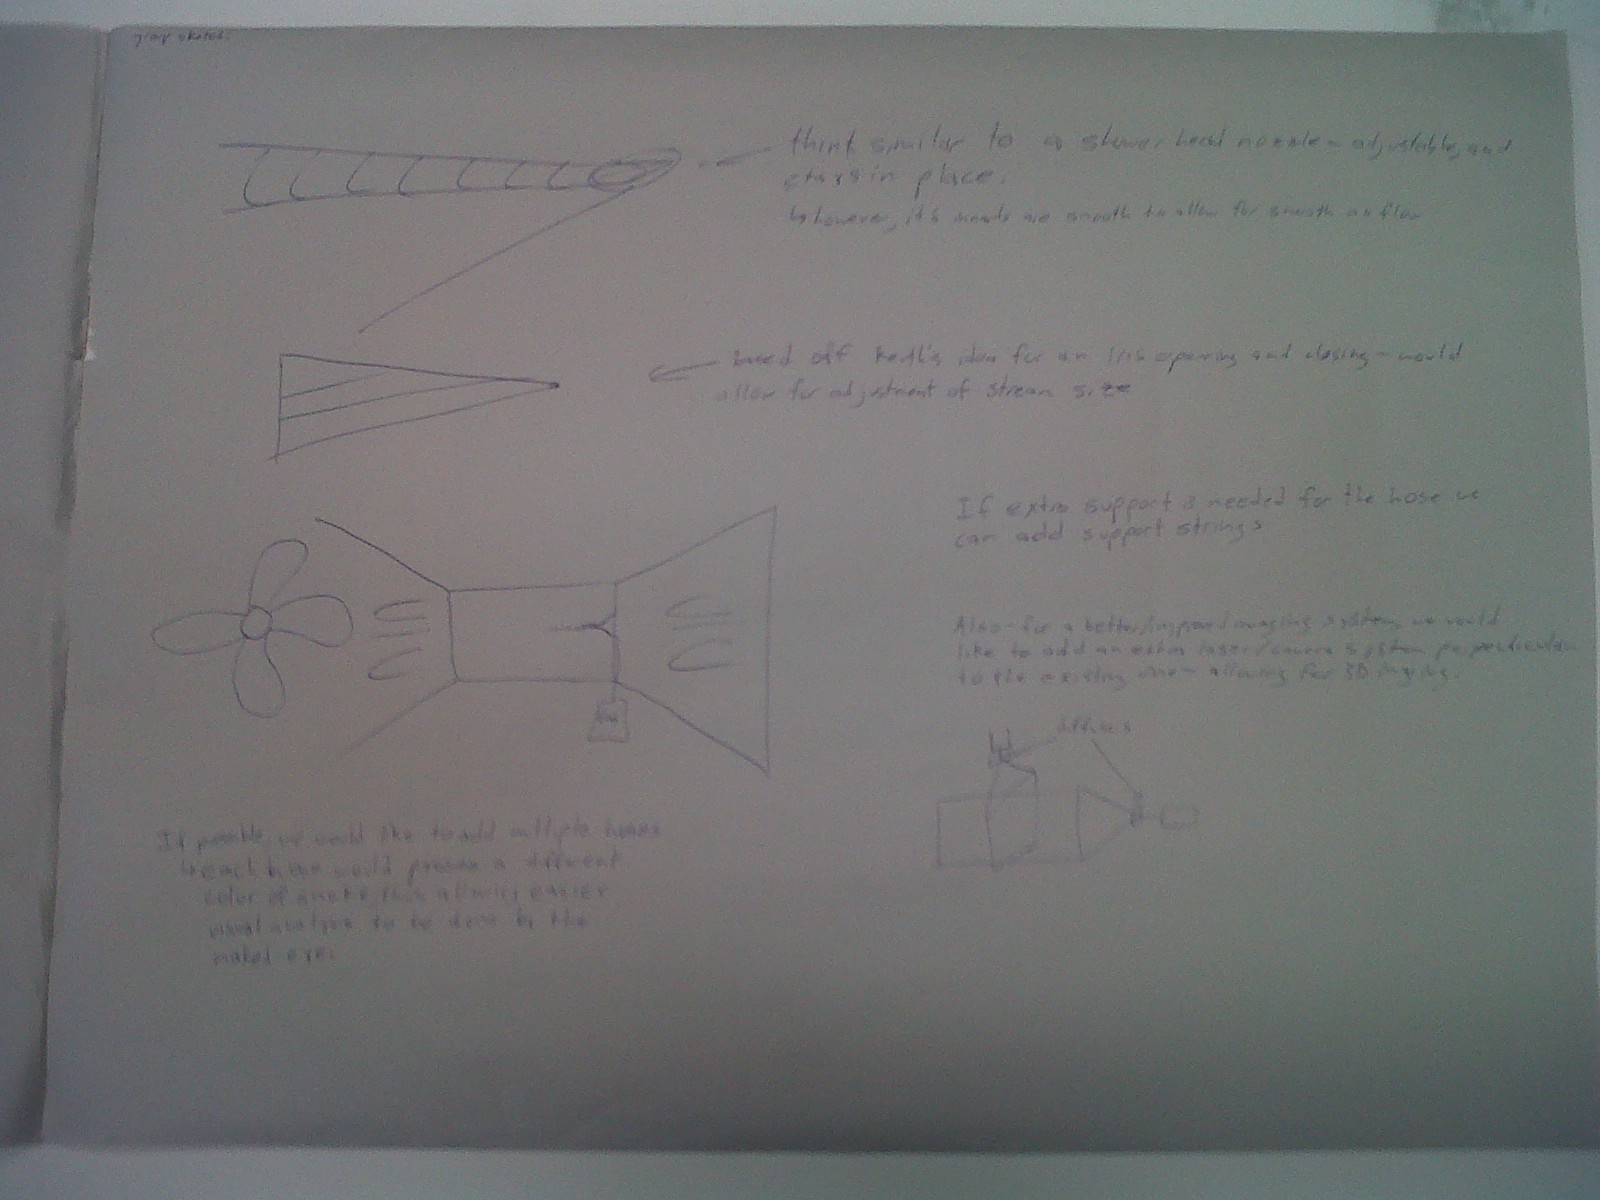 group sketch
think similar to a shower head nozzle - adjustable, and
stays in place.
↳ however, it's inards are smooth to allow for smooth air flow
based off idea for an Iris opening and closing - would
allow for adjustment of stream size
If extra support is needed for the hose we
can add support strings
Also - for a better/improved imaging system, we would
like to add an extra laser/camera system perpendicular
to the existing one - allowing for 3D imaging.
diffusers
If possible, we would like to add multiple hoses
↳ each hose would possess a different
color of smoke, thus allowing easier
visual analysis to be done by the
naked eye.